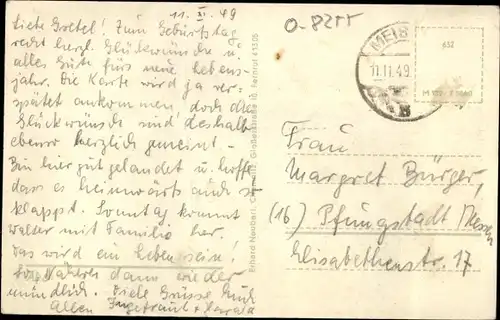 11. XI. 49
Liebe Gretel! Zum Geburtstag
recht herzl. Glückwünsche u.
alles Gute fürs neue Lebens-
jahr. Die Karte wird ja ver-
spätet ankommen doch die
Glückwünsche sind deshalb
ebenso herzlich gemeint -
Bin hier gut gelandet u. hoffe,
dass es heimwärts auch so
klappt. Sonntag kommt
Walter mit Familie her.
Das wird ein Leben sein!
Näheres dann wieder
mündlich. Viele Grüsse Euch
Allen
O-8255
MEIS
11.11.49
632
Erhard Neubert, Chemnitz,
Frau
Margret Bürger,
(16) Pfungstadt
Elisabethenstr. 17